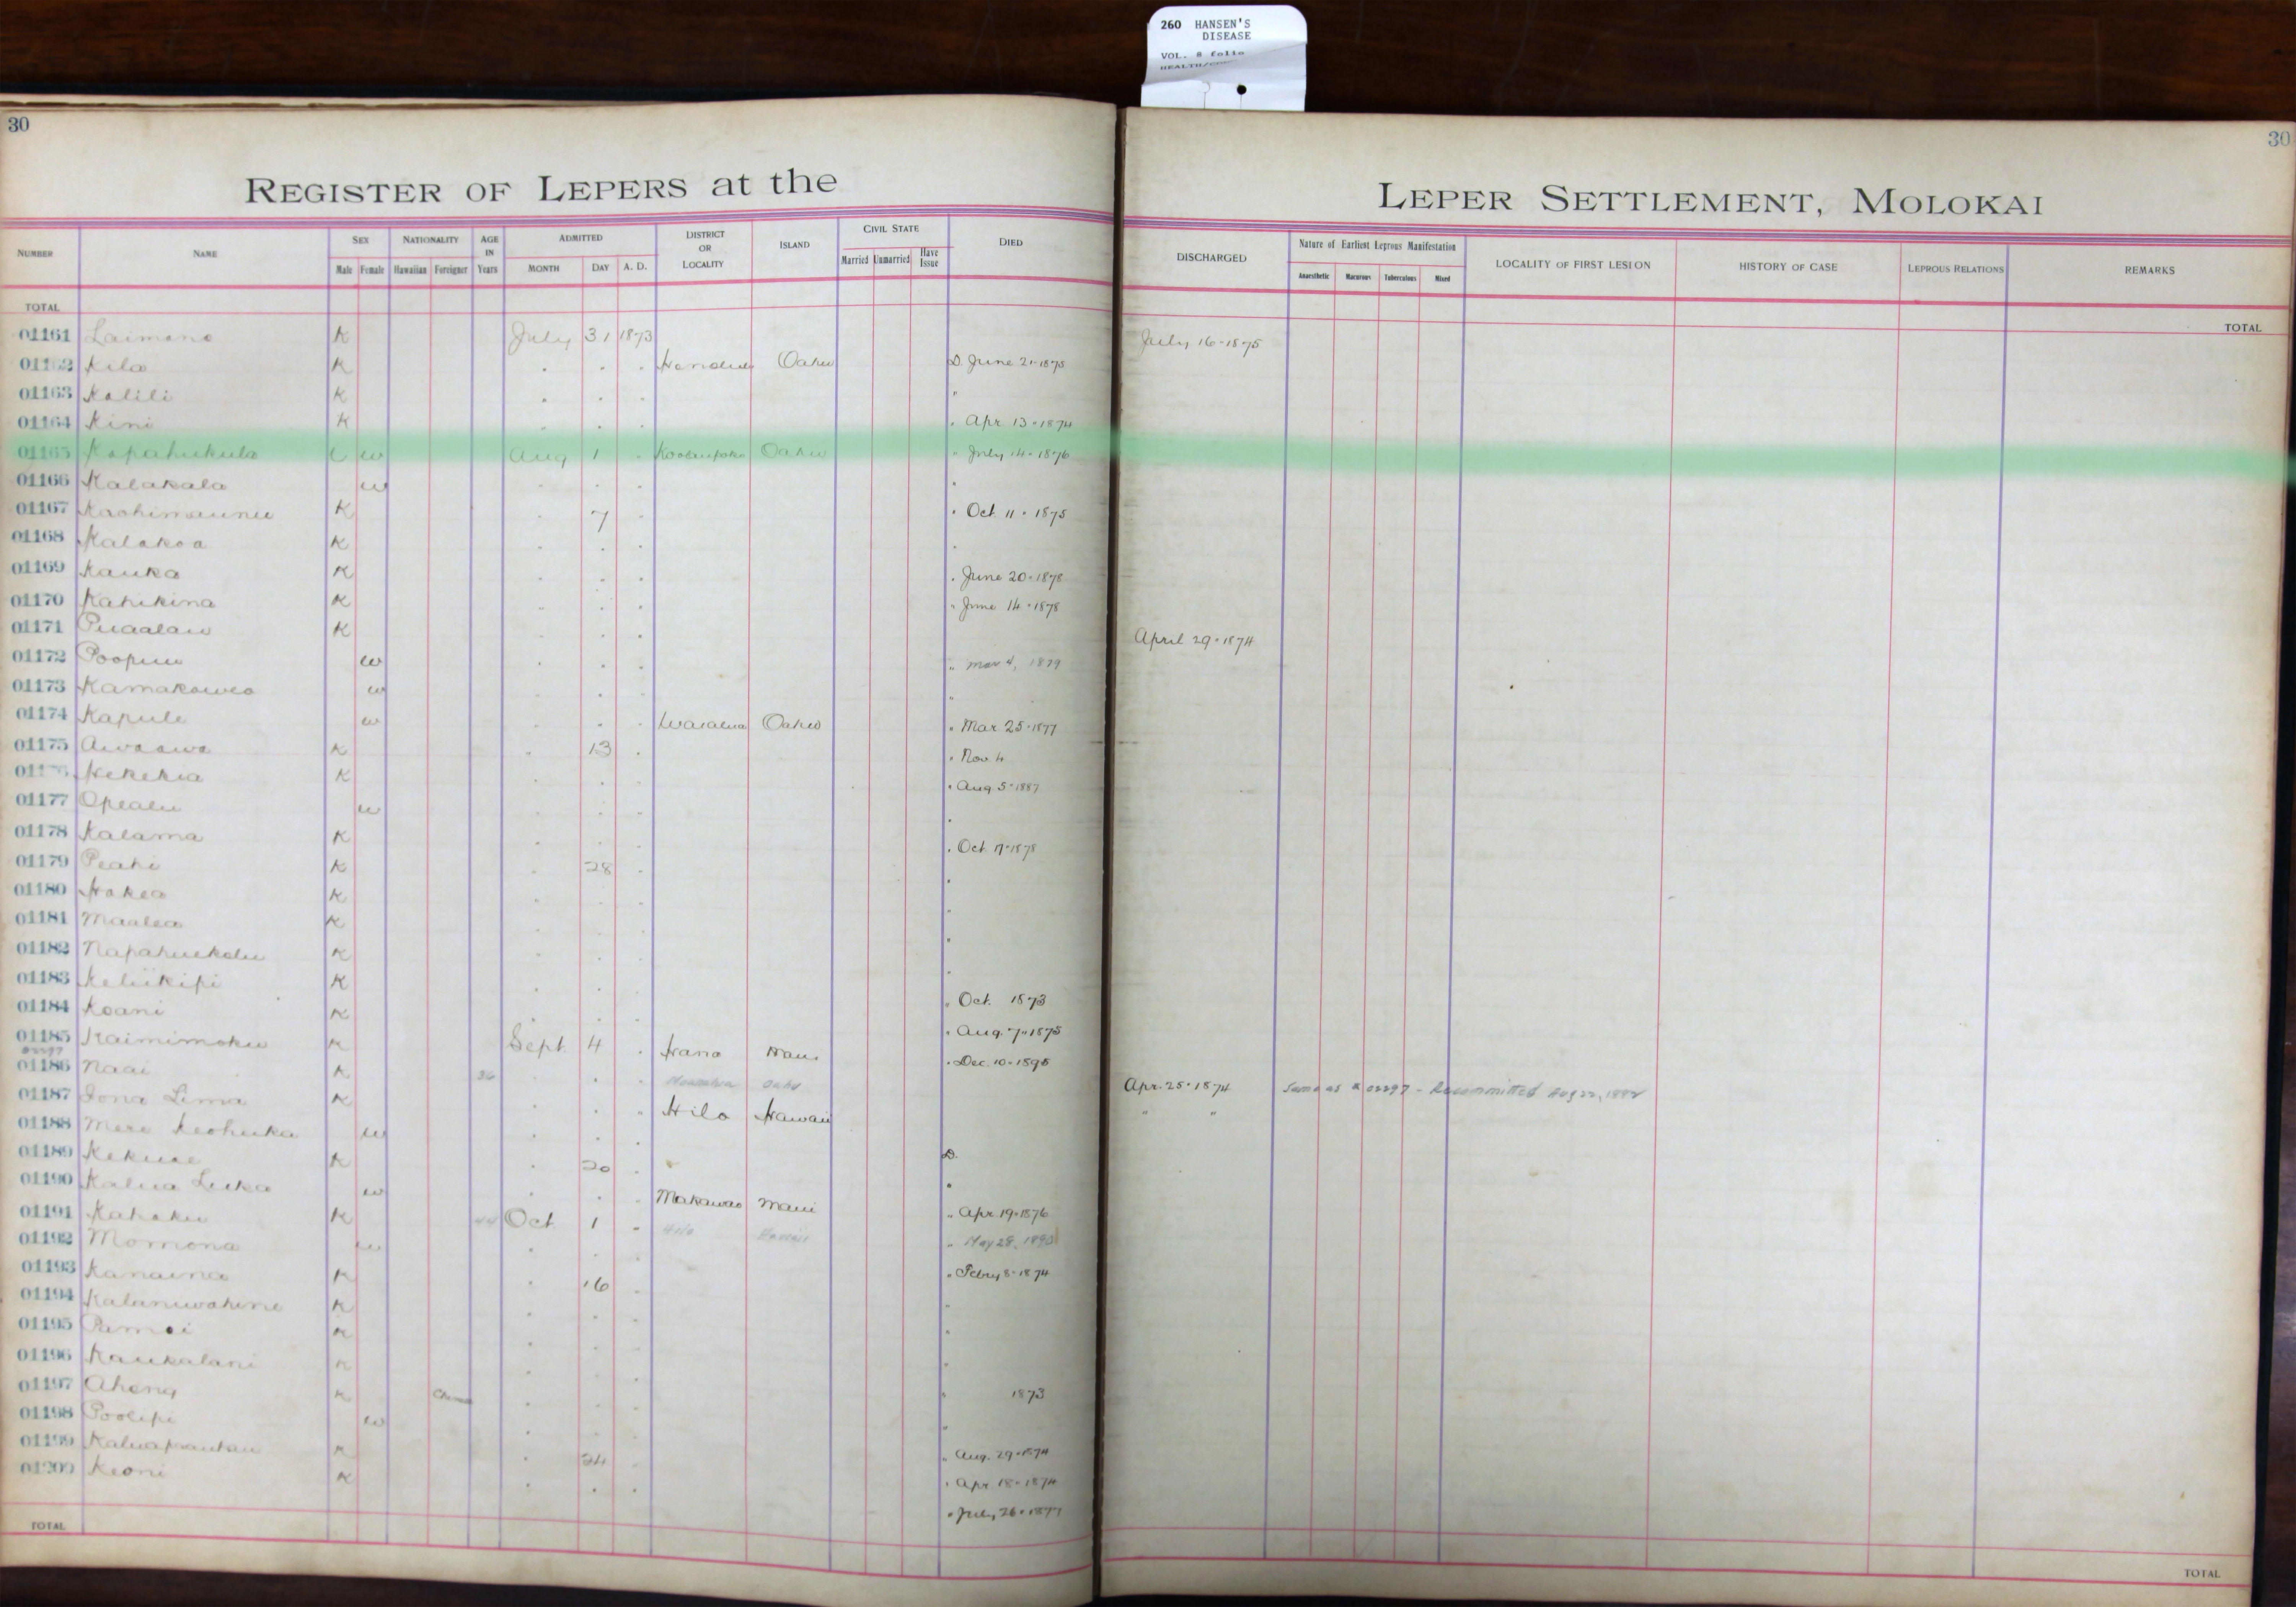 260 HANSEN'S
DISEASE
VOL. 8 folio
30
30
REGISTER OF LEPERS at the LEPER SETTLEMENT, MOLOKAI
NUMBER NAME SEX Male Female NATIONALITY Hawaiian Foreigner AGE IN Years ADMITTED MONTH DAY A. D. DISTRICT OR LOCALITY ISLAND CIVIL STATE Married Unmarried Have Issue DIED DISCHARGED Nature of Earliest Leprous Manifestation Anaesthetic Macurous Tuberculous Mixed LOCALITY OF FIRST LESION HISTORY OF CASE LEPROUS RELATIONS REMARKS
TOTAL TOTAL
01161 Laimana K July 31 1873 July 16-1875
01162 Kila K . . . Honolulu Oahu D. June 21-1875
01163 Kalili K . . . "
01164 Kini K . . . " Apr. 13-1874
01165 Kapahukula w Aug 1 . Koolaupoko Oahu " July 14-1876
01166 Kalakala w . . . "
01167 Kaohimaunu K . 7 . " Oct. 11-1875
01168 Kalakoa K . . . "
01169 Kauka K . . . " June 20-1878
01170 Kahikina K . . . " June 14-1878
01171 Puaalau K . . . April 29-1874
01172 Poopuu w . . . " Mar 4, 1879
01173 Kamakaweo w . . . "
01174 Kapule w . . . Waialua Oahu " Mar. 25-1877
01175 Awaawa K . 13 . " Nov. 4
01176 Kekekia K . . . " Aug. 5-1887
01177 Opealu w . . . "
01178 Kalama K . . . " Oct. 17-1878
01179 Peahi K . 28 . "
01180 Hakea K . . . "
01181 Maalea K . . . "
01182 Napahuekolu K . . . "
01183 Keliikipi K . . . " Oct. 1873
01184 Koani K . . . " Aug. 7-1875
01185 Kaimimoku K Sept. 4 . Hana Maui " Dec. 10-1895
01186 Naai K 36 . . . Oahu Apr. 25-1874 Same as # 02297 - Recommitted Aug 22, 1882
01187 Iona Lima K . . " Hilo Hawaii " "
01188 Mere Keohuka w . . . D.
01189 Kekuae K . 20 . "
01190 Kalua Luka w . . . Makawao Maui " Apr. 19-1876
01191 Kahaku K 44 Oct 1 " Hilo Hawaii " May 28, 1890
01192 Momona w . . . " Febry 8-1874
01193 Kanaina K . 16 . "
01194 Kalaniwahine K . . . "
01195 Pamai K . . . "
01196 Kaukalani K . . . " 1873
01197 Ahong K . . . "
01198 Poolipi w . . . " Aug. 29-1874
01199 K . 24 . " Apr. 18-1874
01200 Keoni K . . . " July 26-1877
TOTAL TOTAL